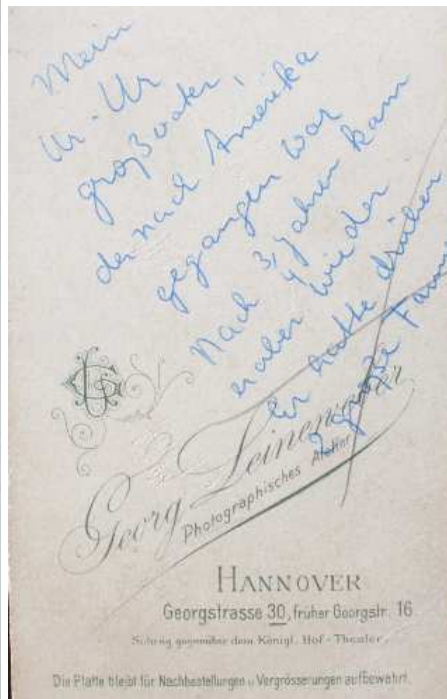 Mein
Ur-Ur
großvater,
der nach Amerika
gegangen war
Nach 3 Jahren kam
er aber wieder
Er hatte drüben
große
Georg Leinenweber
Photographisches Atelier
HANNOVER
Georgstrasse 30, früher Georgstr. 16
gegenüber dem Königl. Hof-Theater.
Die Platte bleibt für Nachbestellungen u. Vergrösserungen aufbewahrt.